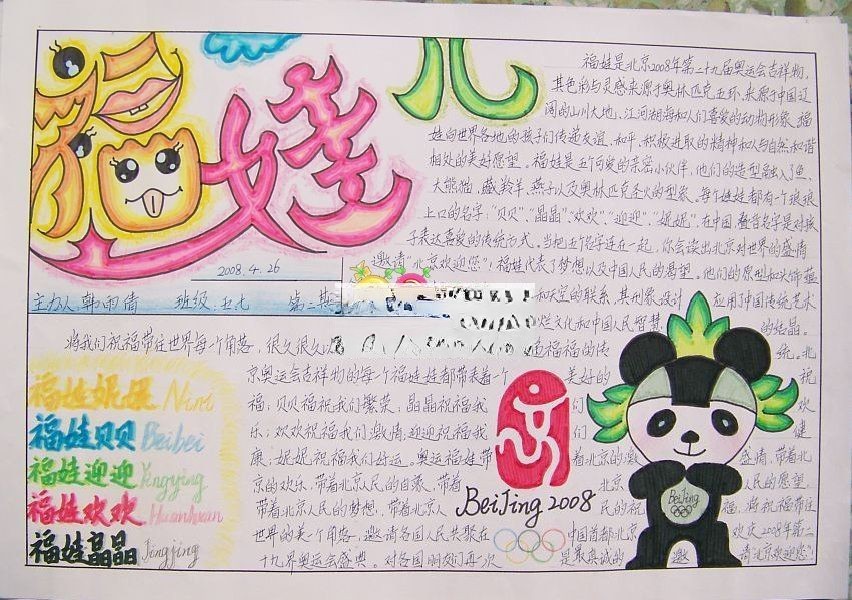 福娃儿
福娃是北京2008年第二十九届奥运会吉祥物,
其色彩与灵感来源于奥林匹克五环,来源于中国辽
阔的山川大地、江河湖海和人们喜爱的动物形象。福
娃向世界各地的孩子们传递友谊、和平、积极进取的精神和人与自然和谐
相处的美好愿望。福娃是五个可爱的亲密小伙伴,他们的造型融入了鱼、
大熊猫、藏羚羊、燕子以及奥林匹克圣火的型象。每个娃娃都有一个琅琅
上口的名字:“贝贝”,“晶晶”,“欢欢”,“迎迎”,“妮妮”,在中国,叠音名字是对孩
子表达喜爱的传统方式。当把五个名字连在一起,你会读出北京对世界的盛情
邀请“北京欢迎您”!福娃代表了梦想以及中国人民的渴望。他们的原型和头饰蕴
和天空的联系,其形象设计 应用了中国传统艺术
烂文化和中国人民智慧 的结晶。
2008.4.26
主办人:韩雨倩 班级:五七 第二期
将我们祝福带往世界每个角落,很久很久以 福福的传 统。北
京奥运会吉祥物的每个福娃娃都带来着一个 美好的 祝
福:贝贝福祝我们繁荣;晶晶祝福我 们 欢
乐;欢欢祝福我们激情;迎迎祝福我 们 健
康;妮妮祝福我们好运。奥运福娃带 着北京的激 盛情,带着北
京的欢乐,带着北京人民的自豪,带着 北京 人民的愿望,
带着北京人民的梦想,带着北京人 民的祝 福,将祝福带往
世界的美个角落,邀请各国人民共聚在 中国首都北京 欢庆2008年第二
十九界奥运会盛典。对各国朋友们再次 是最真诚的 邀 请“北京欢迎您”!
福娃妮妮 Nini
福娃贝贝 Beibei
福娃迎迎 Yingying
福娃欢欢 Huanhuan
福娃晶晶 Jingjing
BeiJing 2008
BeiJing